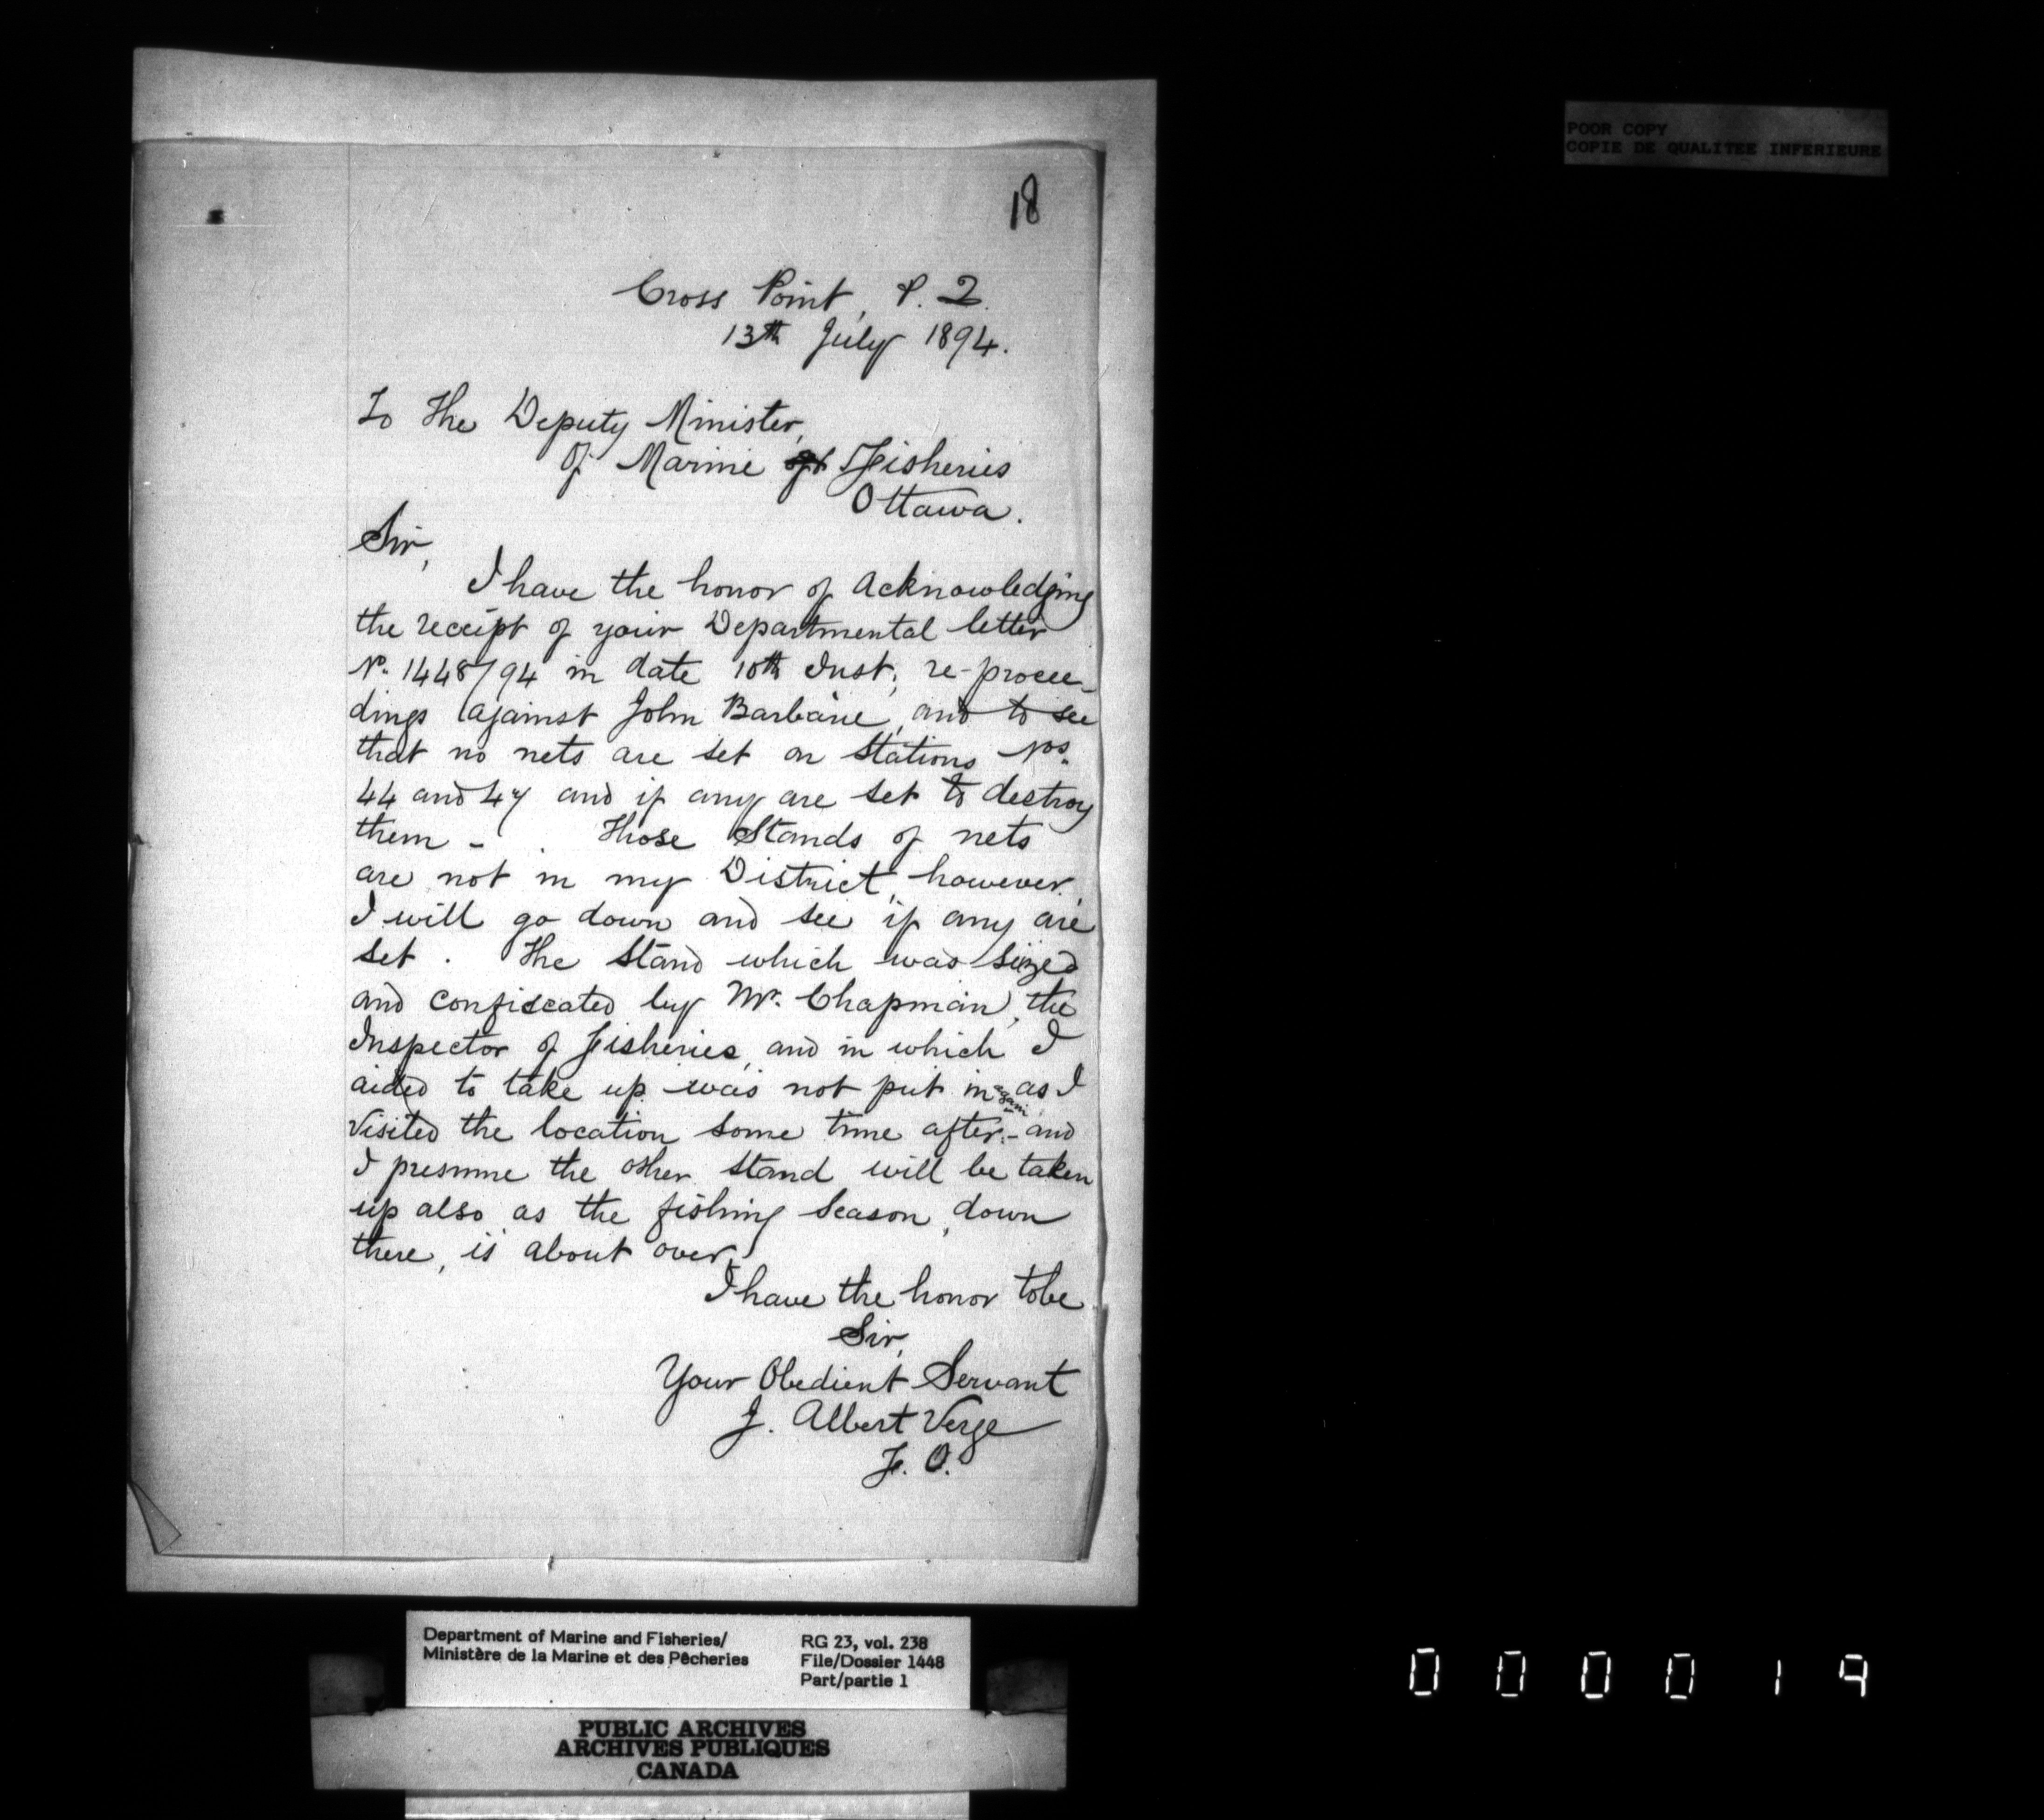 POOR COPY
COPIE DE QUALITEE INFERIEURE
18
Cross Point, P. Q.
13th July 1894.
To The Deputy Minister,
Of Marine & Fisheries
Ottawa.
Sir,
I have the honor of acknowledging
the receipt of your Departmental letter
No. 1448/94 in date 10th Inst; re-procee-
dings against John Barbarie, and to see
that no nets are set on Stations Nos.
44 and 47 and if any are set to destroy
them - . Those Stands of nets
are not in my District, however,
I will go down and see if any are
set . The stand which was siezed
and confiscated by Mr. Chapman, the
Inspector of Fisheries, and in which I
aided to take up was not put in again as I
visited the location some time after:- and
I presume the other stand will be taken
up also as the fishing season, down
there, is about over,
I have the honor to be
Sir,
Your Obedient Servant
J. Albert Verge
F. O.
Department of Marine and Fisheries/
Ministère de la Marine et des Pêcheries
RG 23, vol. 238
File/Dossier 1448
Part/partie 1
PUBLIC ARCHIVES
ARCHIVES PUBLIQUES
CANADA
000019